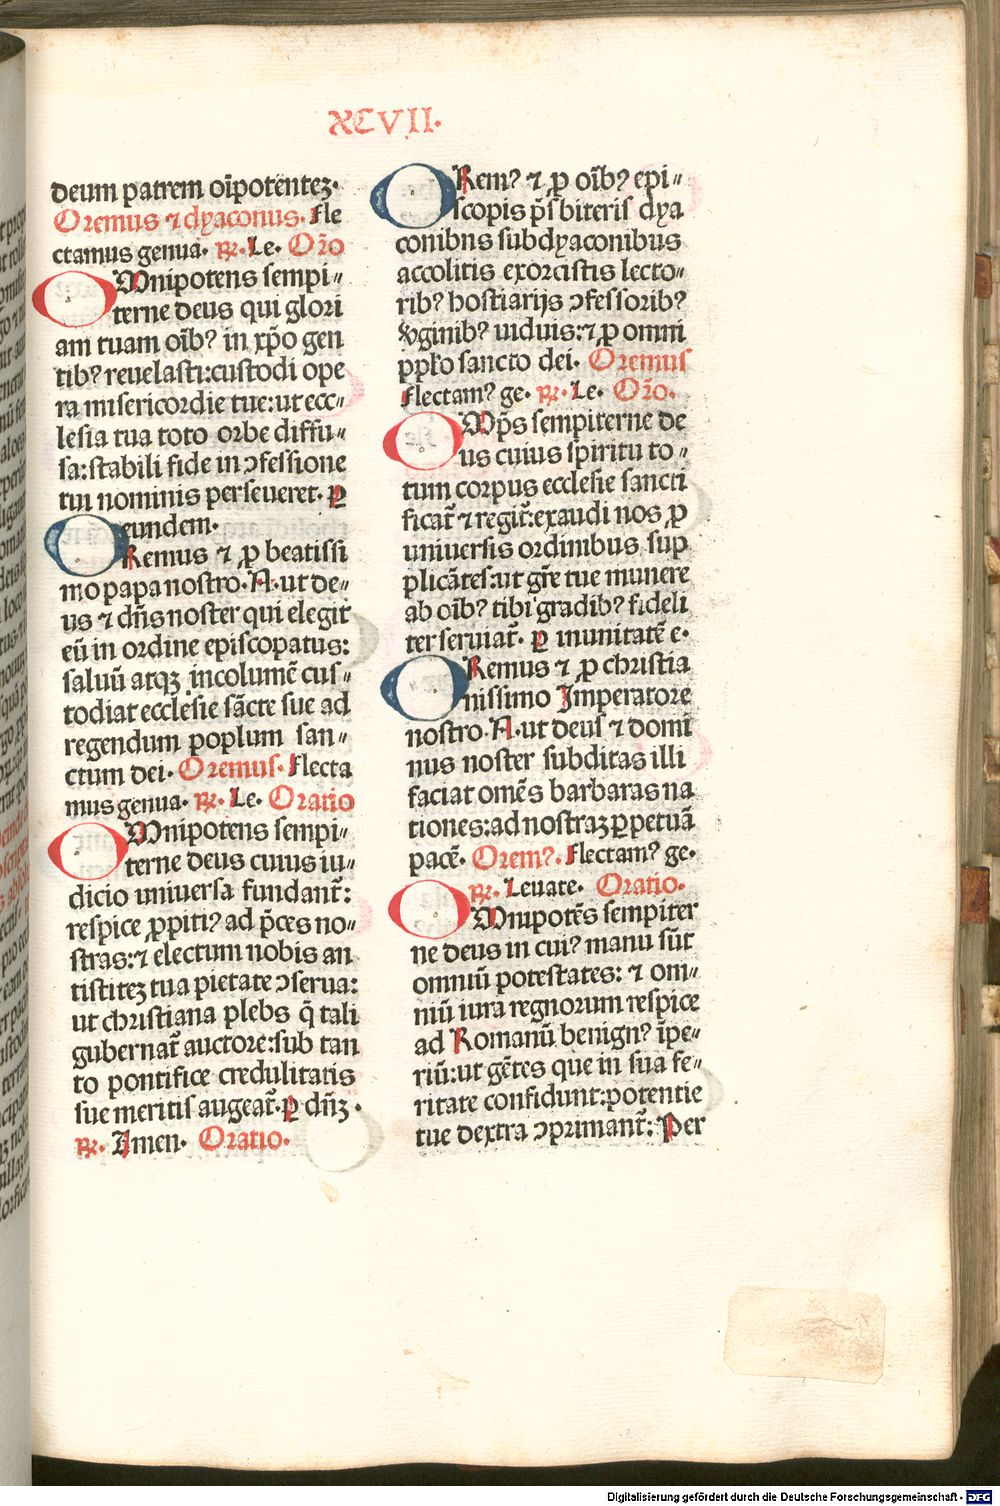 XCVII.
deum patrem oīpotentez.
Oremus ⁊ dyaconus. Fle
ctamus genua. ℞. Le. Oro̅
OMnipotens sempi⸗
terne deus qui glori
am tuam oīb⁹ in xp̄o gen
tib⁹ reuelasti:custodi ope
ra misericordie tue:ut ecc⸗
lesia tua toto orbe diffu⸗
sa:stabili fide in ꝯfessione
tui nominis perseueret. ꝑ
eundem.
ORemus ⁊ ꝓ beatissi
mo papa nostro. N. ut de⸗
us ⁊ dn̄s noster qui elegit
eū in ordine episcopatus:
saluū atqꝫ incolumē cus⸗
todiat ecclesie sāctе sue ad
regendum poplum san⸗
ctum dei. Oremus. Flecta
mus genua. ℞. Le. Oratio
OMnipotens sempi⸗
terne deus cuius iu⸗
dicio uniuersa fundant̄:
respice ꝓpiti⁹ ad p̄ces no⸗
stras:⁊ electum nobis an
tistitez tua pietate ꝯserua:
ut christiana plebs q̄ tali
gubernat̄ auctore:sub tan
to pontifice credulitatis
sue meritis augeat̄. ꝑ dn̄ꝫ.
℞. Amen. Oratio.
ORem⁹ ⁊ ꝓ oīb⁹ epi⸗
scopis p̄sbiteris dya
conibns subdyaconibus
accolitis exorcistis lecto⸗
rib⁹ hostiarijs ꝯfessorib⁹
v̄ginib⁹ uiduis:⁊ ꝓ omni
pplo̅ sancto dei. Oremus
Flectam⁹ ge. ℞. Le. Oro̅.
OMp̄s sempiterne de
us cuius spiritu to⸗
tum corpus ecclesie sancti
ficat̄ ⁊ regit̄:exaudi nos ꝓ
uniuersis ordinibus sup
plicātes:ut gr̄e tue munere
ab oīb⁹ tibi gradib⁹ fideli
ter seruiat̄. ꝑ in unitatē e.
ORemus ⁊ ꝓ christia
nissimo Imperatore
nostro. N. ut deus ⁊ domi
nus noster subditas illi
faciat omēs barbaras na
tiones:ad nostraꝫ ꝑpetuā
pacē. Orem⁹. Flectam⁹ ge.
℞. Leuate. Oratio.
OMnipotēs sempiter
ne deus in cui⁹ manu sūt
omniū potestates: ⁊ om⸗
niū iura regnorum respice
ad Romanū benign⁹ īpe⸗
riū:ut gētes que in sua fe⸗
ritate confidunt:potentie
tue dextra ꝯprimant̄: Per
Digitalisierung gefördert durch die Deutsche Forschungsgemeinschaft - DFG